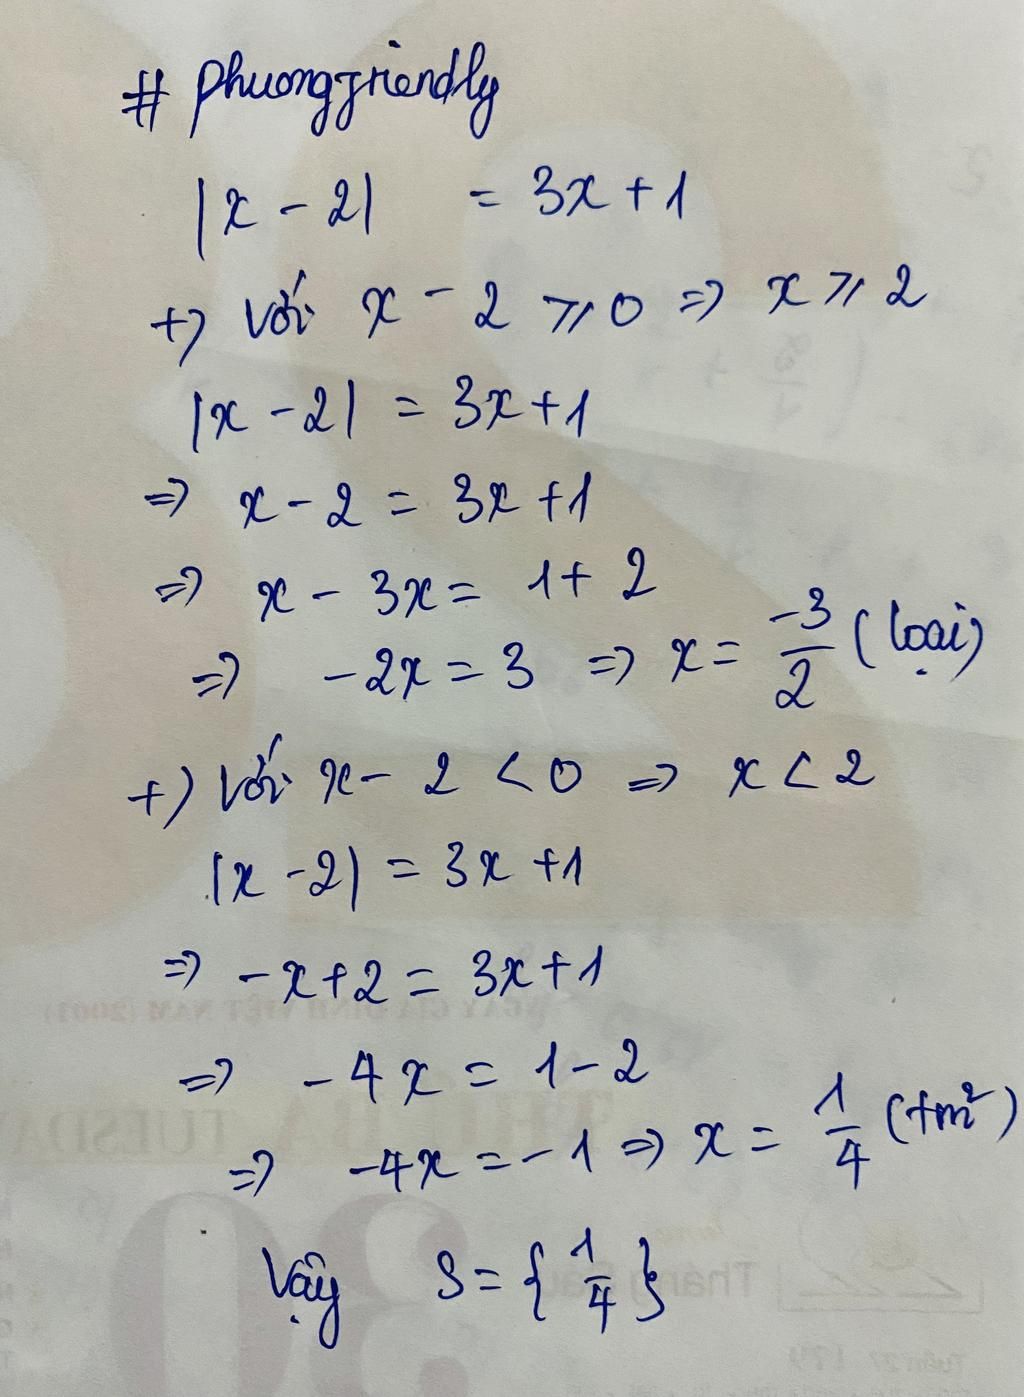 # phuongfriendly
|x - 2| = 3x + 1
+) Với x - 2 ⩾ 0 => x ⩾ 2
|x - 2| = 3x + 1
=> x - 2 = 3x + 1
=> x - 3x = 1 + 2
=> -2x = 3 => x = -3/2 (loại)
+) Với x - 2 < 0 => x < 2
|x - 2| = 3x + 1
=> -x + 2 = 3x + 1
=> -4x = 1 - 2
=> -4x = -1 => x = 1/4 (tm²)
Vậy S = {1/4}